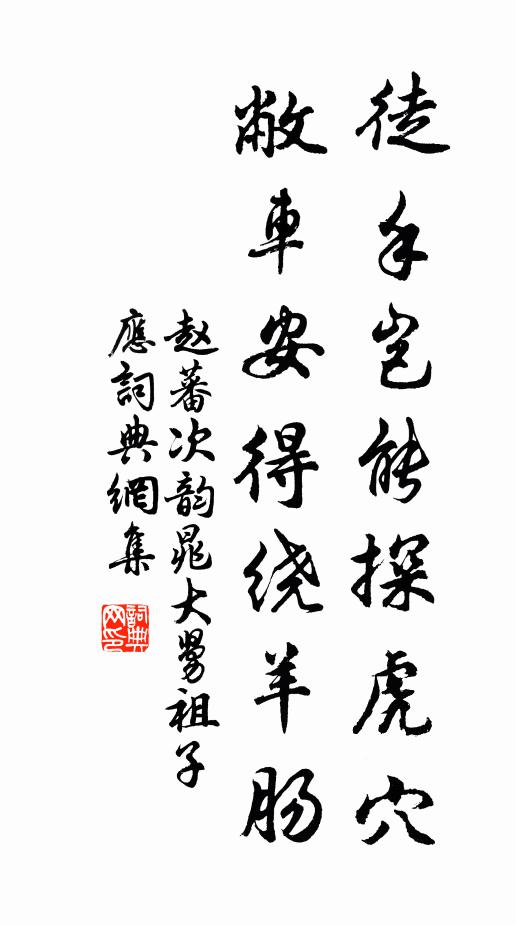 徒手岂能探虎穴
敝車安得绕羊肠
赵蕃次韵晁大舅祖子
應詞典網集
詞典网印